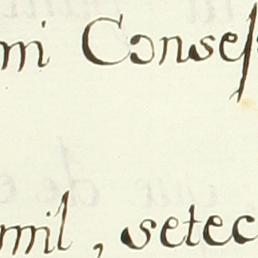 mi Conses
mil, setec